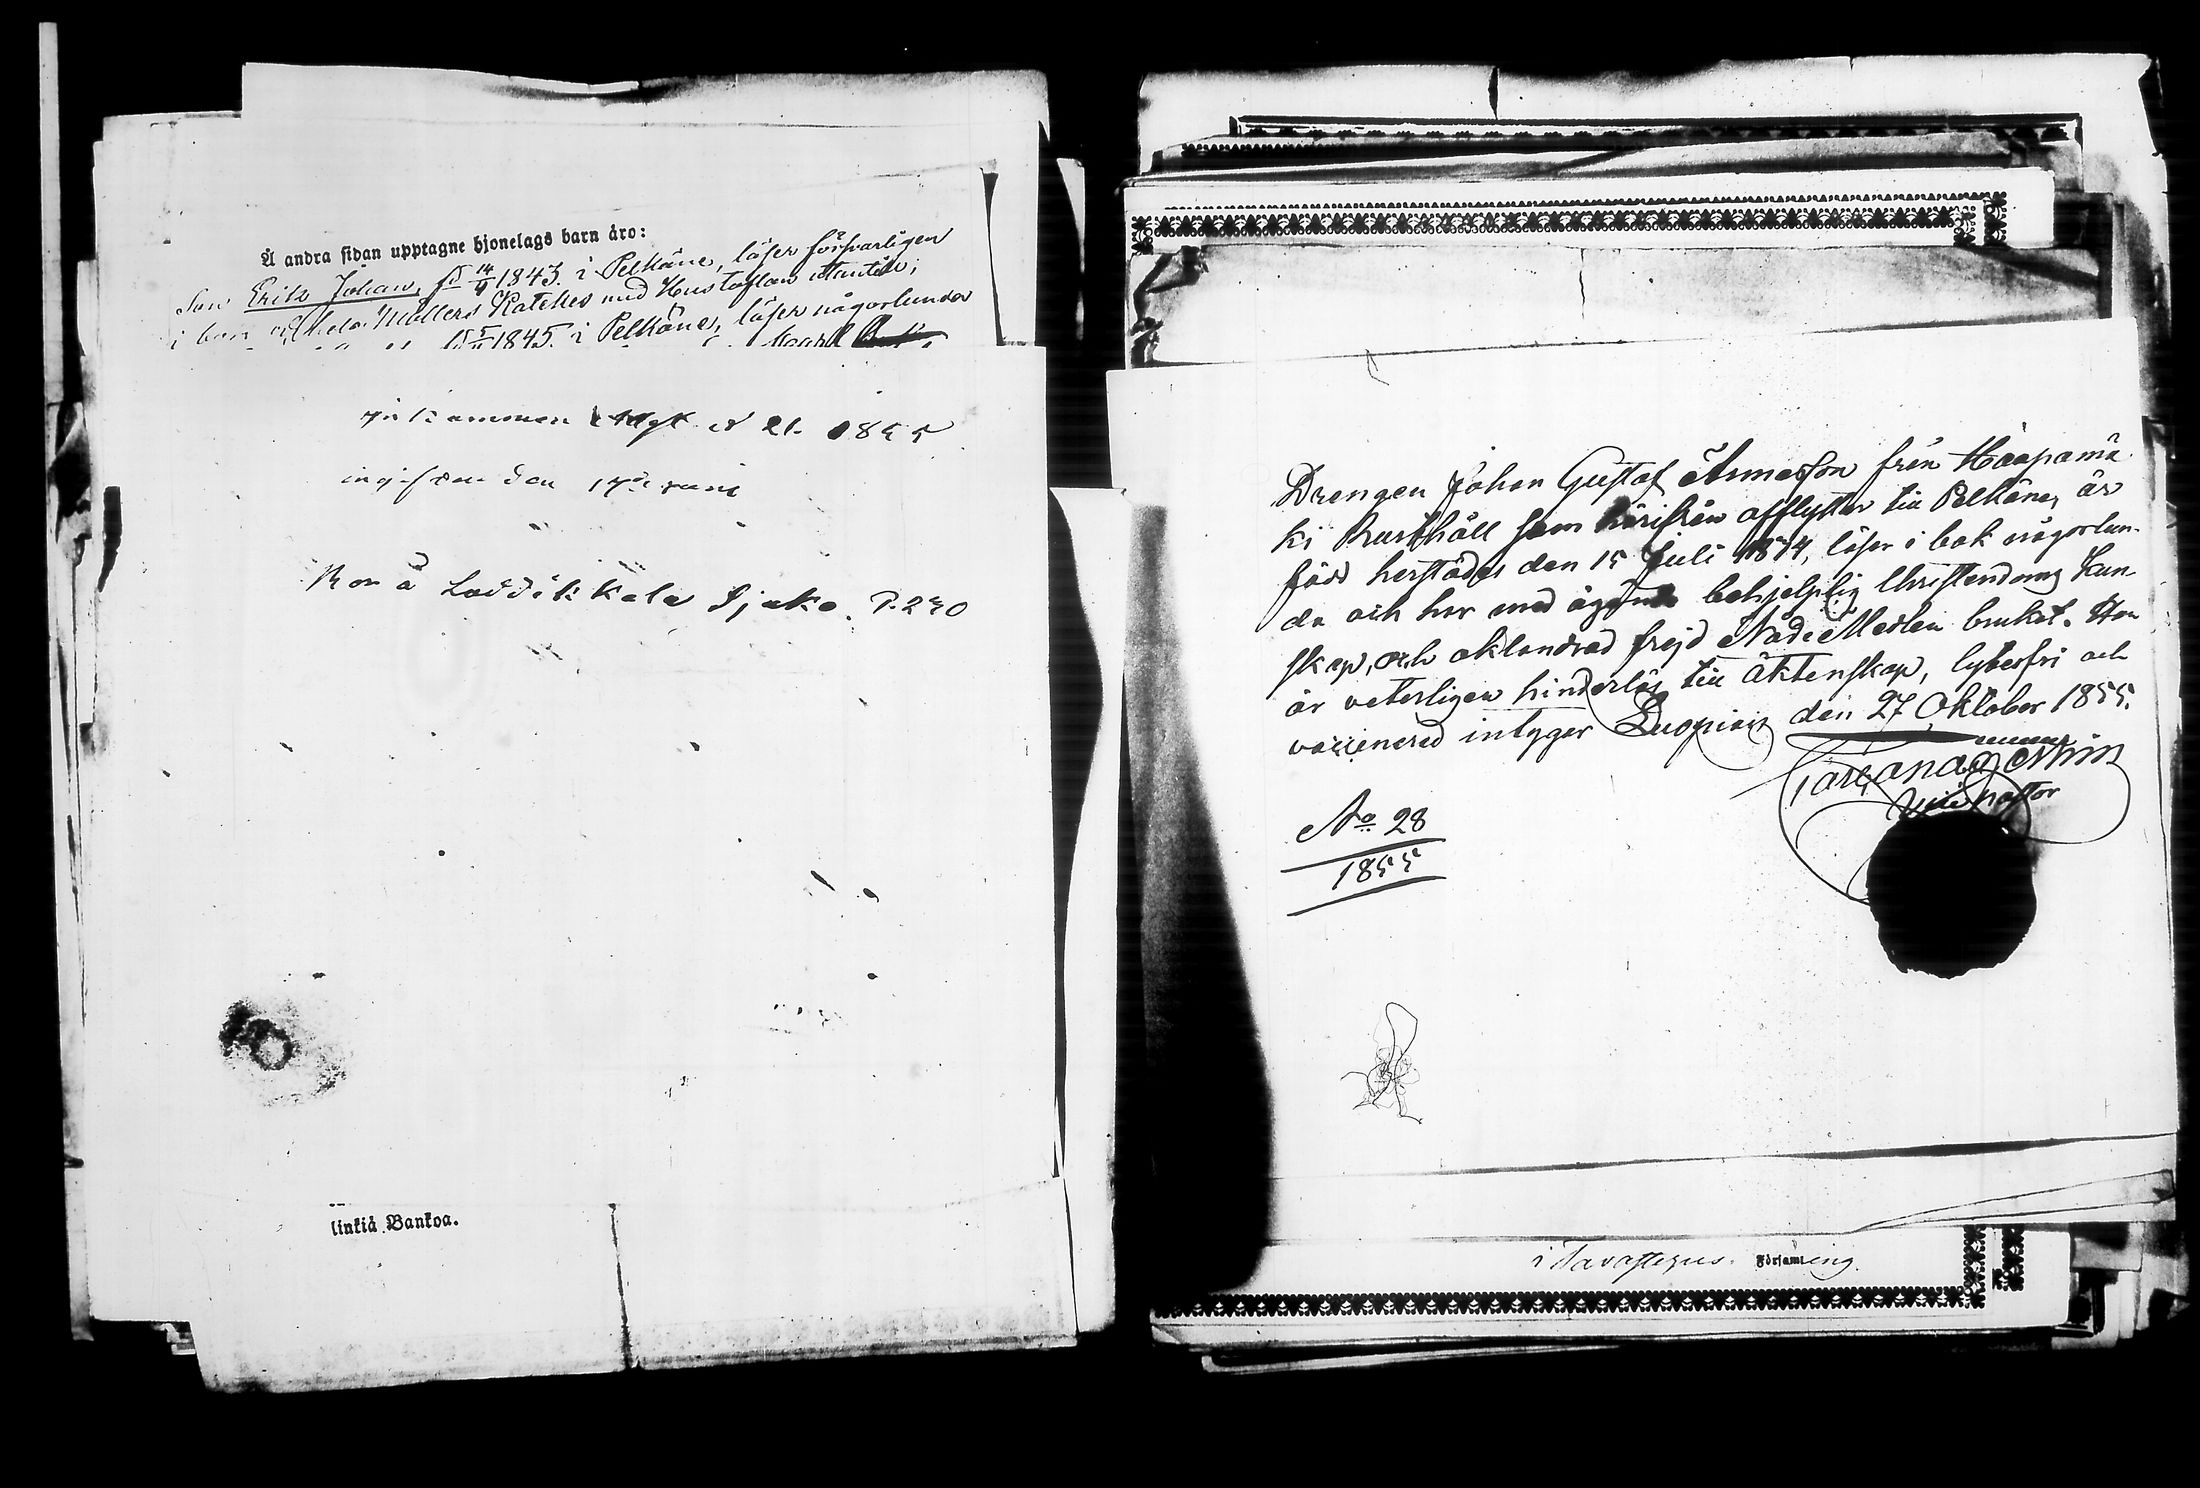 Å andra sidan upptagne hjonelags barn äro:
Son Erik Johan, fd 14/4 1843. i Pelkäne, läser försvarligen
i bok hela Möllers Katches med Hustaflan utantill;
fd 5/11 1845. i Pelkäne, läser någorlunda
Inkommen d 21. 1855
ingifven den
Bor å Laddikkala Sjöko. P. 240
linkiä Bankoa.
Drengen Johan Gustaf Arnesson från Haapamä
ki Rusthåll som härifrån afflyttar till Pelkäne, är
född herstädes den 15 Juli 1874, läser i bok någorlun-
da och har med ägande behjelplig Christendoms Kun
skap, och oklandrad frejd Nåde Medlen brukat. Han
är veterligen hinderlös till äktenskap, lytesfri och
vaccinered intygar Luopiois den 27 Oktober 1855.
Vice pastor
No 28
1855
i Tavastehus. Församling.